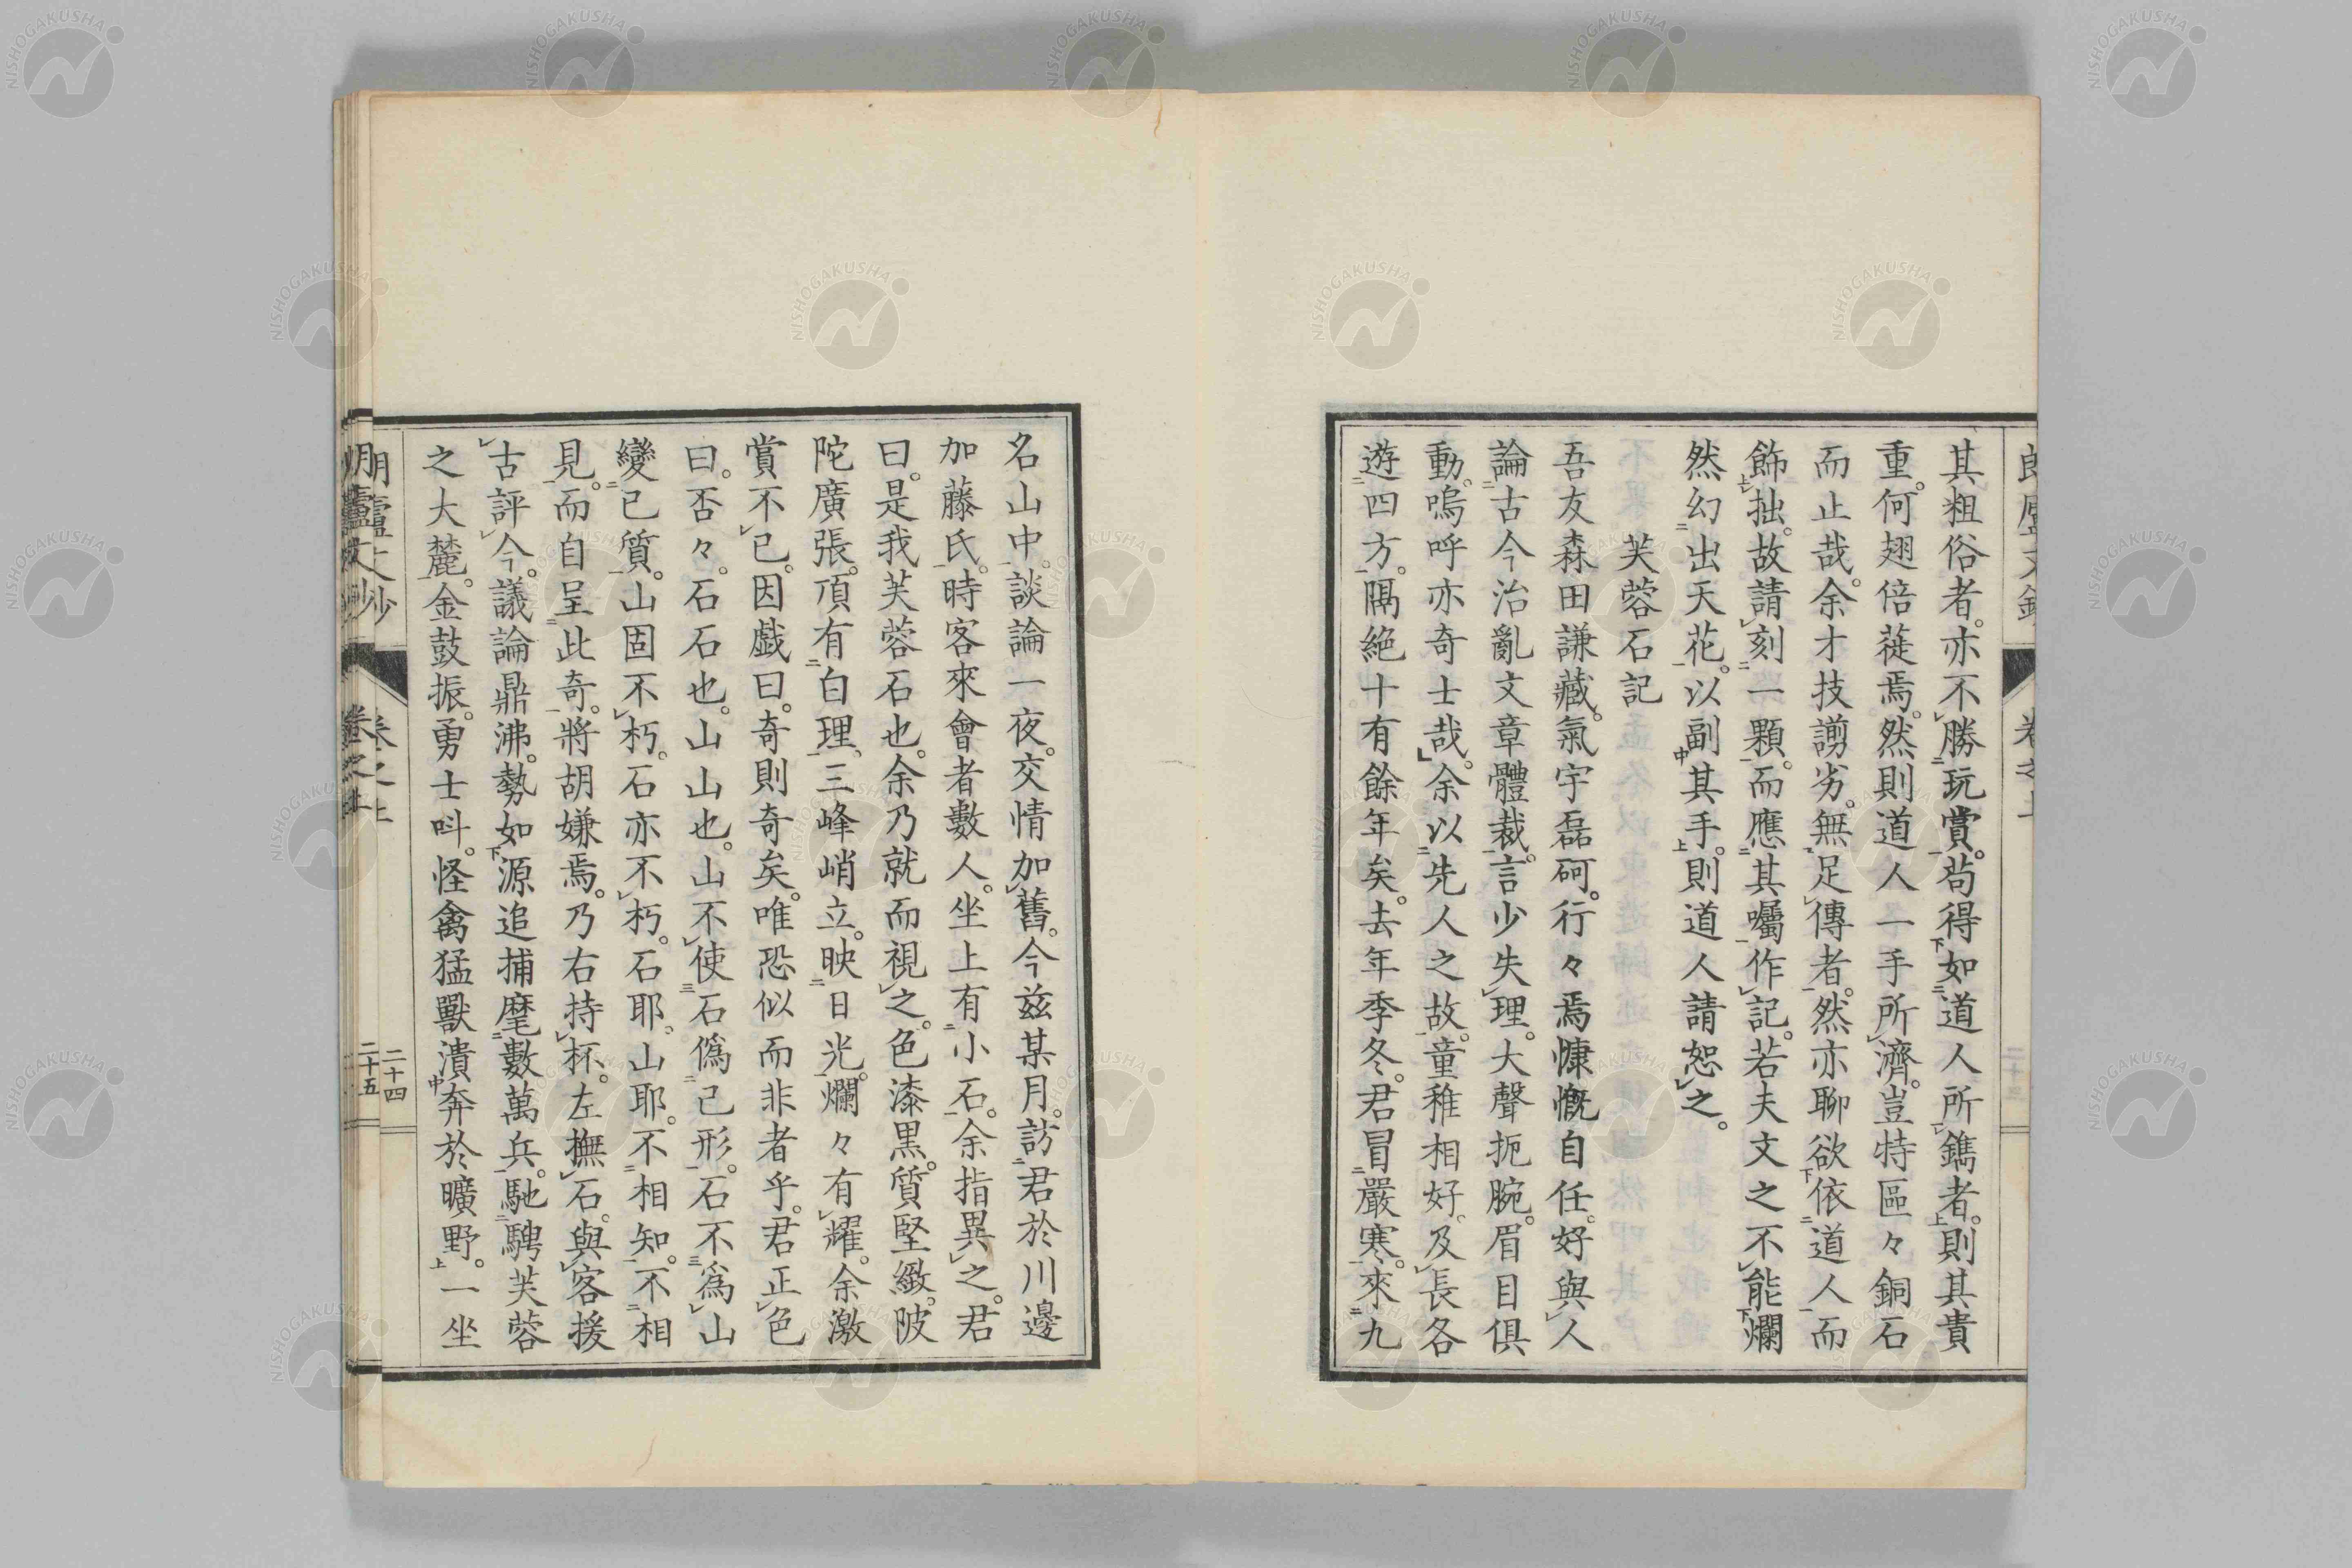 其粗俗者。亦不勝玩賞。苟得如道人所鐫者。則其貴
重。何翅倍蓰焉。然則道人一手所濟。豈特區々銅石
而止哉。余才技謭劣。無足傳者。然亦聊欲依道人而
飾拙。故請刻一顆。而應其囑作記。若夫文之不能爛
然幻出天花。以副其手。則道人請恕之。
芙蓉石記
吾友森田謙藏。氣宇磊砢。行々焉慷慨自任。好與人
論古今治亂文章體裁。言少失理。大聲扼腕。眉目俱
動。嗚呼亦奇士哉。余以先人之故。童稚相好。及長各
遊四方。隔絶十有餘年矣。去年季冬。君冒嚴寒。來九
名山中。談論一夜。交情加舊。今茲某月。訪君於川邊
加藤氏。時客來會者數人。坐上有小石。余指異之。君
曰。是我芙蓉石也。余乃就而視之。色漆黒。質堅緻。陂
陀廣張。頂有白理。三峰峭立。映日光。爛々有耀。余激
賞不已。因戯曰。奇則奇矣。唯恐似而非者乎。君正色
曰。否々。石石也。山山也。山不使石僞己形。石不爲山
變己質。山固不朽。石亦不朽。石耶。山耶。不相知。不相
見。而自呈此奇。將胡嫌焉。乃右持杯。左撫石。與客援
古評今。議論鼎沸。勢如源追捕麾數萬兵。馳騁芙蓉
之大麓。金鼓振。勇士呌。怪禽猛獸潰奔於曠野。一坐
二十四
二十五
NISHOGAKUSHA